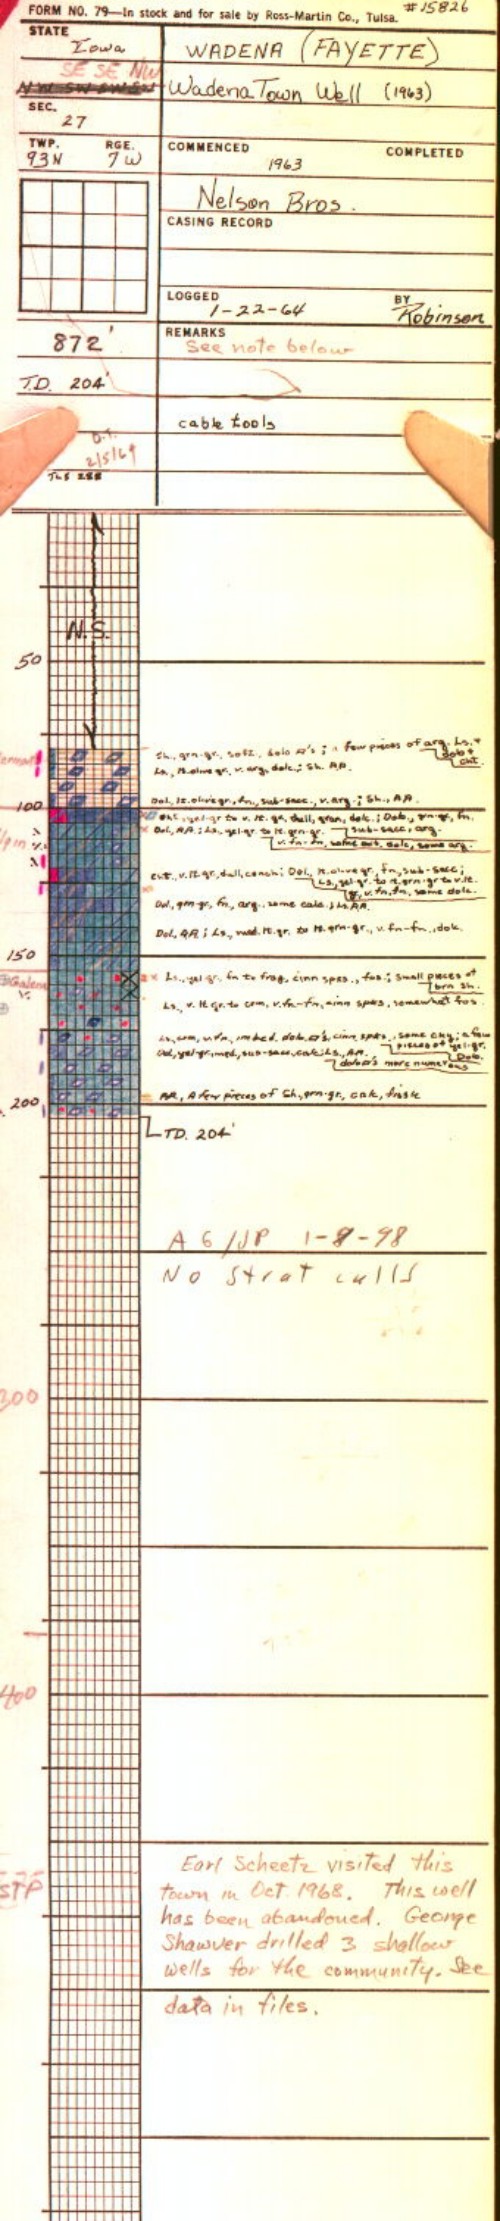 FORM NO. 79—In stock and for sale by Ross-Martin Co., Tulsa. #15826
STATE
Iowa
WADENA (FAYETTE)
SE SE NW
Wadena Town Well (1963)
SEC.
27
TWP. RGE.
93N 7W
COMMENCED COMPLETED
1963
Nelson Bros.
CASING RECORD
LOGGED BY
1-22-64 Robinson
872'
REMARKS
See note below
T.D. 204'
cable tools
2/5/64
N.S.
50
Sh., grn-gr., solz., dolo; a few pieces of arg. Ls. +
dol +
cht.
Ls., lt. olive gr., v. arg., dolc.; Sh. AA.
100
Dol., lt. olive gr., fn., sub-sacc., v. arg.; Sh., AA.
cht., yel-gr to v. lt. gr., dull, gran, dolc.; Dol., grn-gr, fn.
sub-sacc, arg.
Dol., AA.; Ls., yel-gr to lt. grn-gr.
v. fn-fn, some dolc, some arg.
cht., v. lt. gr., dull, conch; Dol., lt. olive gr., fn, sub-sacc;
Ls., yel-gr to lt. grn-gr to v. lt.
gr, v. fn, fn, some dolc.
Dol., grn-gr, fn., arg., some calc.; Ls. AA.
Dol., AA; Ls., med. lt. gr. to lt. grn-gr., v. fn-fn., dolc.
150
Galena
Ls., yel gr, fn to frag, cinn spks., fos.; small pieces of
brn sh.
Ls., v. lt gr. to crm, v. fn-fn, cinn spks, somewhat fos.
Ls., crm, v. fn, imbed. dolo, cinn. spks., some chky; a few
pieces of yel-gr.
Dolo.
Dol., yel-gr, med, sub-sacc, calc; Ls., AA.
more numerous
AA, A few pieces of Sh., grn-gr., calc, fissle
200
TD. 204'
AG/JP 1-8-98
No Strat calls
300
400
STP
Earl Scheetz visited this
town in Oct. 1968. This well
has been abandoned. George
Shawver drilled 3 shallow
wells for the community. See
data in files.